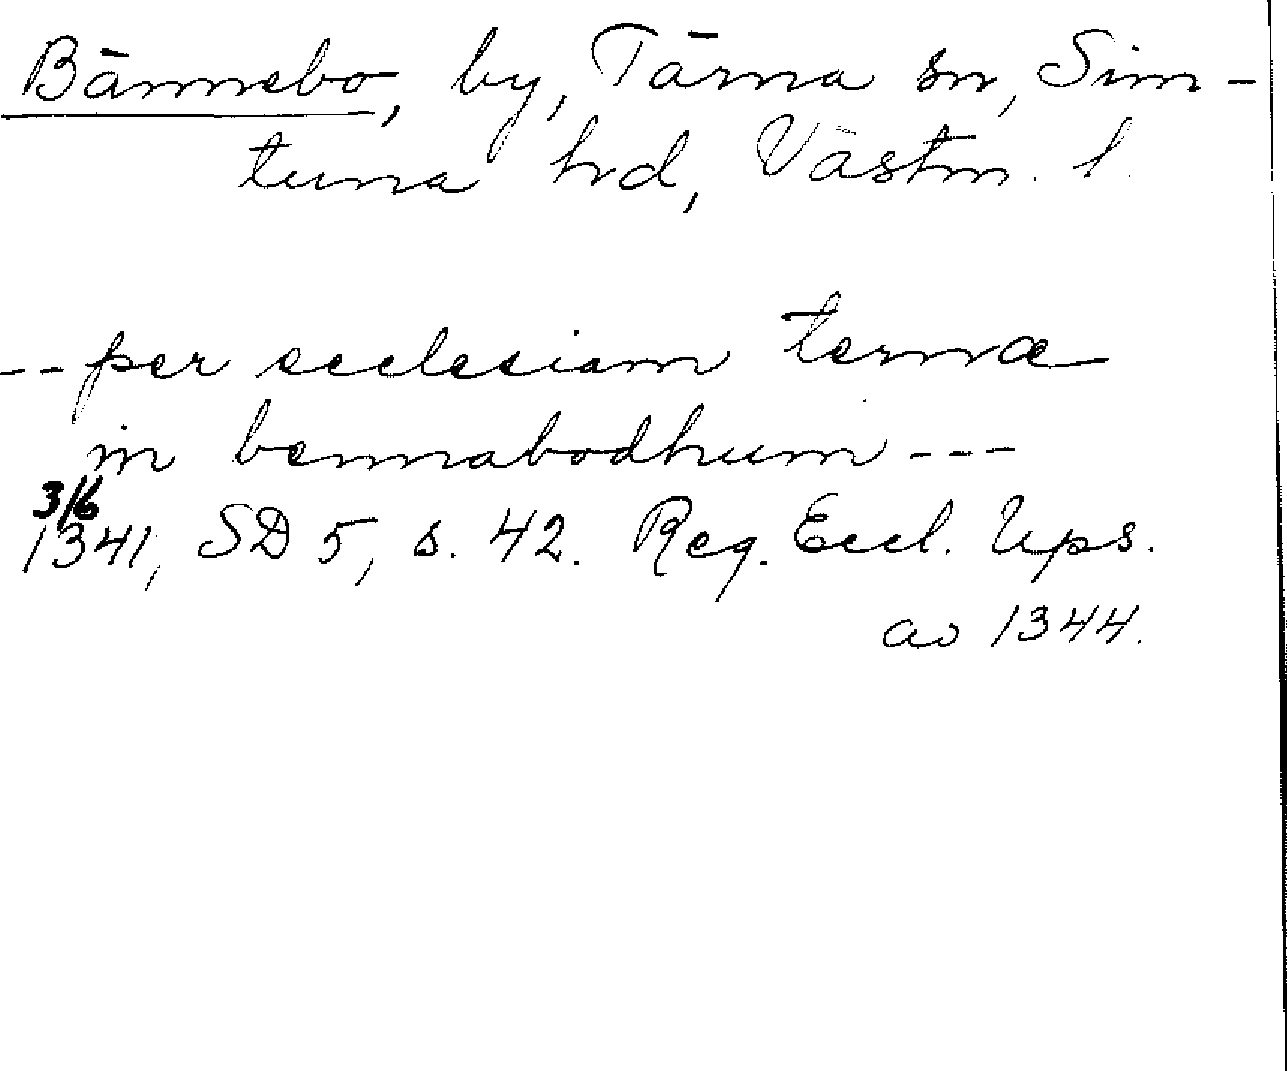 Bännebo, by, Tärna sn, Sim-
tuna hd, Västm. l.
-- per ecclesiam ternæ
in bennabodhum ---
3/6
1341, SD 5, s. 42. Reg. Eccl. Ups.
av 1344.